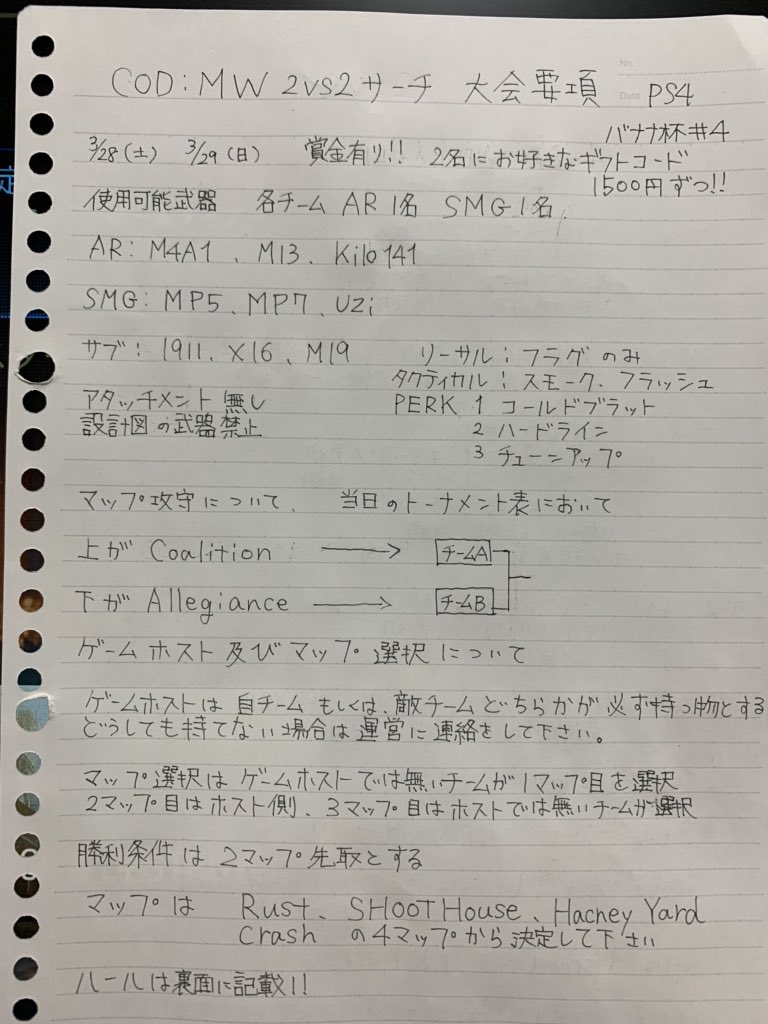 No.
Date
COD:MW 2vs2サーチ 大会要項 PS4
バナナ杯#4
3/28(土) 3/29(日) 賞金有り!! 2名にお好きなギフトコード
1500円ずつ!!
使用可能武器 各チーム AR 1名 SMG 1名
AR: M4A1、M13、Kilo141
SMG: MP5、MP7、Uzi
サブ: 1911、X16、M19
リーサル: フラグのみ
タクティカル: スモーク、フラッシュ
アタッチメント無し
設計図の武器禁止
PERK 1 コールドブラット
2 ハードライン
3 チューンアップ
マップ攻守について、 当日のトーナメント表において
上が Coalition → チームA
下が Allegiance → チームB
ゲームホスト及びマップ選択について
ゲームホストは自チームもしくは、敵チームどちらかが必ず持つ物とする
どうしても持てない場合は運営に連絡をして下さい。
マップ選択はゲームホストでは無いチームが1マップ目を選択
2マップ目はホスト側、3マップ目はホストでは無いチームが選択
勝利条件は2マップ先取とする
マップは Rust、SHOOT House、Hacney Yard
Crash の4マップから決定して下さい
ルールは裏面に記載!!